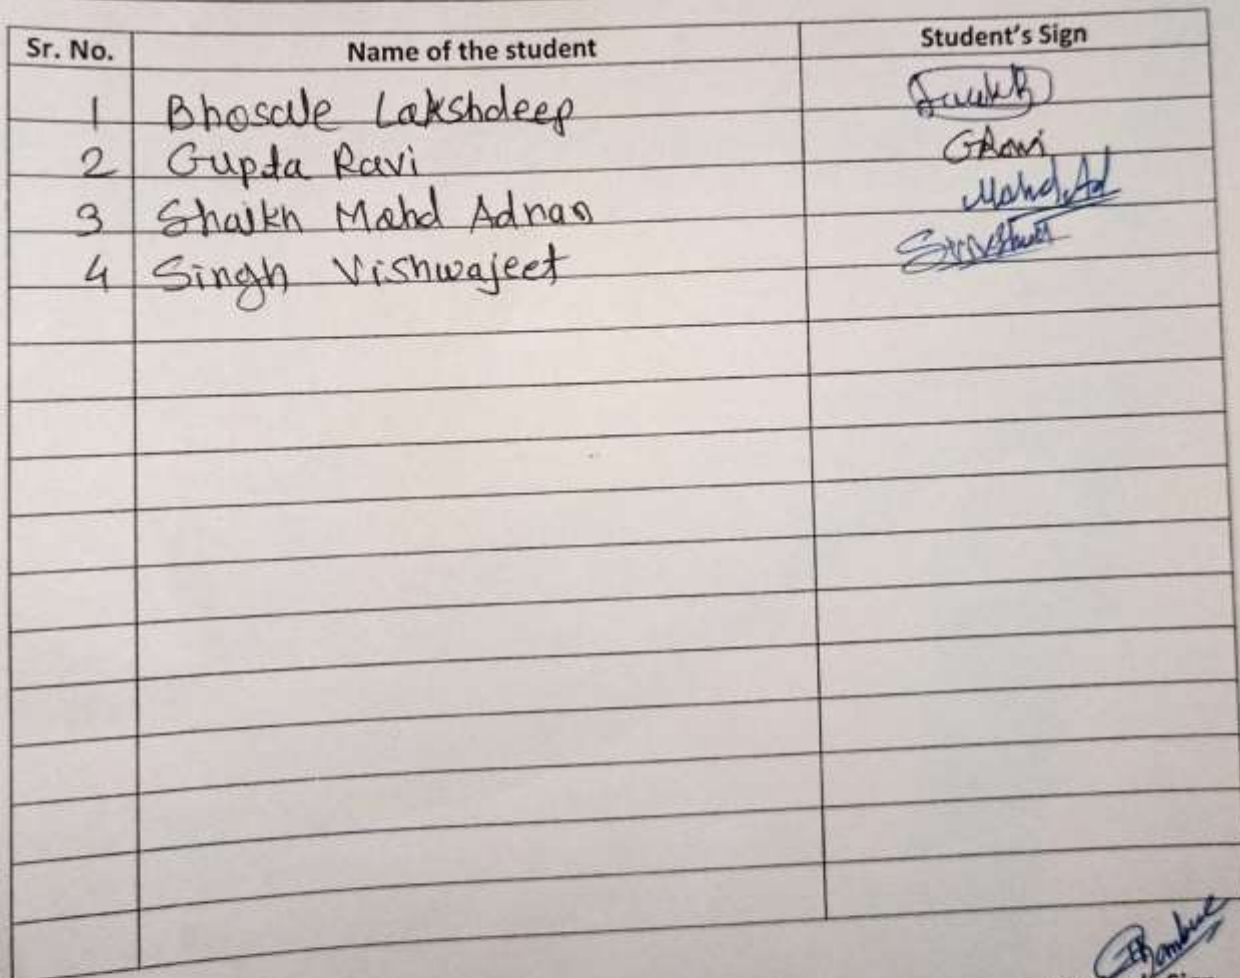 Sr. No. Name of the student Student's Sign
1 Bhosale Lakshdeep
2 Gupta Ravi GRavi
3 Shaikh Mohd Adnan Mohd.Ad
4 Singh Vishwajeet